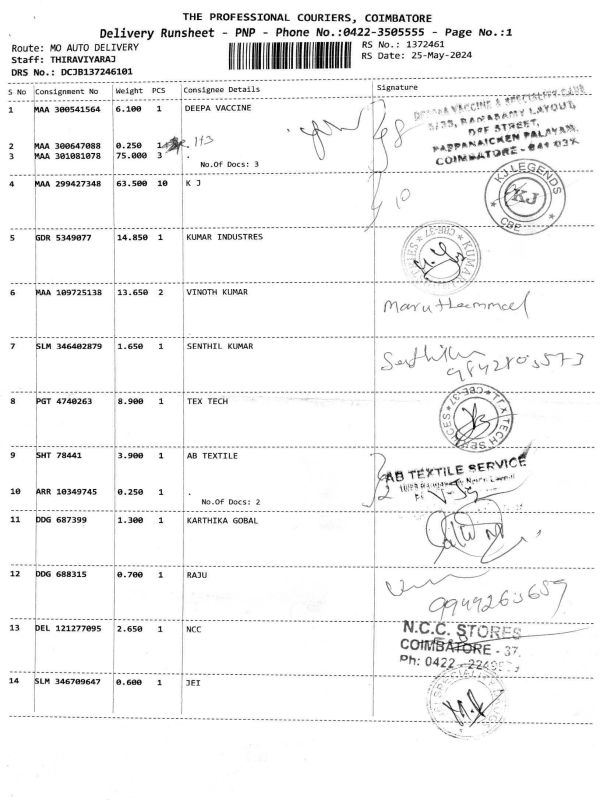 THE PROFESSIONAL COURIERS, COIMBATORE
Delivery Runsheet - PNP - Phone No.:0422-3505555 - Page No.:1
Route: MO AUTO DELIVERY
RS No.: 1372461
Staff: THIRAVIYARAJ
RS Date: 25-May-2024
DRS No.: DCJB137246101
S No Consignment No Weight PCS Consignee Details Signature
1 MAA 300541564 6.100 1 DEEPA VACCINE
2 MAA 300647088 0.250
3 MAA 301081078 75.000 3 .
No.Of Docs: 3
98
DEEPA VACCINE & SPECIALITY CLUB
5/33, RAMASAMY LAYOUT,
DPF STREET,
PAPPANAICKEN PALAYAM,
COIMBATORE - 641 037
4 MAA 299427348 63.500 10 K J
10
KJ LEGENDS
KJ
CBE
5 GDR 5349077 14.850 1 KUMAR INDUSTRES
6 MAA 109725138 13.650 2 VINOTH KUMAR
7 SLM 346402879 1.650 1 SENTHIL KUMAR
Senthil
8 PGT 4740263 8.900 1 TEX TECH
9 SHT 78441 3.900 1 AB TEXTILE
AB TEXTILE SERVICE
10 ARR 10349745 0.250 1 .
No.Of Docs: 2
2
11 DDG 687399 1.300 1 KARTHIKA GOBAL
12 DDG 688315 0.700 1 RAJU
13 DEL 121277095 2.650 1 NCC
N.C.C. STORES
COIMBATORE - 37.
Ph: 0422 -
14 SLM 346709647 0.600 1 JEI